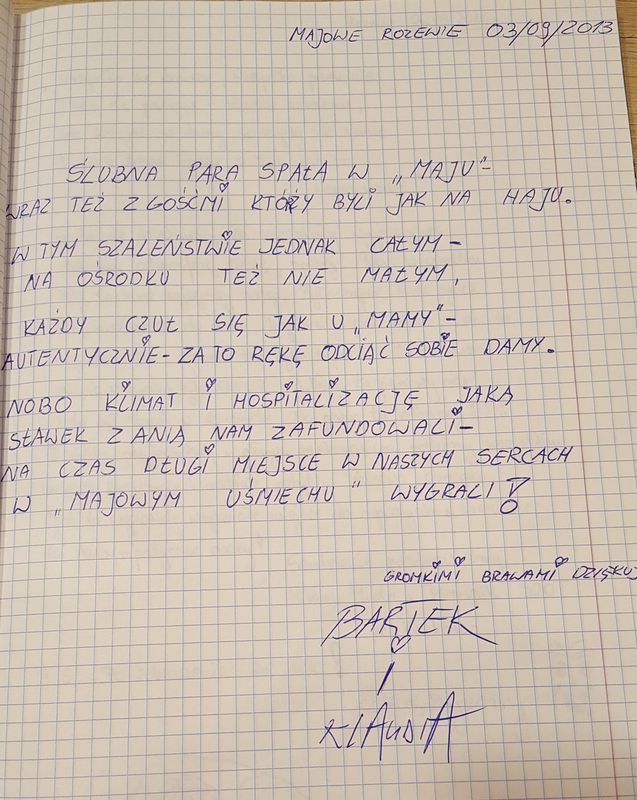 MAJOWE ROZEWIE 03/09/2013
ŚLUBNA PARA SPAŁA W „MAJU"-
WRAZ TEŻ Z GOŚĆMI KTÓRZY BYLI JAK NA HAJU.
W TYM SZALEŃSTWIE JEDNAK CAŁYM -
NA OŚRODKU TEŻ NIE MAŁYM,
KAŻDY CZUŁ SIĘ JAK U „MAMY"-
AUTENTYCZNIE - ZA TO RĘKĘ ODCIĄĆ SOBIE DAMY.
NOBO KLIMAT I HOSPITALIZACJĘ JAKĄ
SŁAWEK Z ANIĄ NAM ZAFUNDOWALI-
NA CZAS DŁUGI MIEJSCE W NASZYCH SERCACH
W „MAJOWYM UŚMIECHU" WYGRALI!
GROMKIMI BRAWAMI DZIĘKUJ
BARTEK
i
KLAUDIA